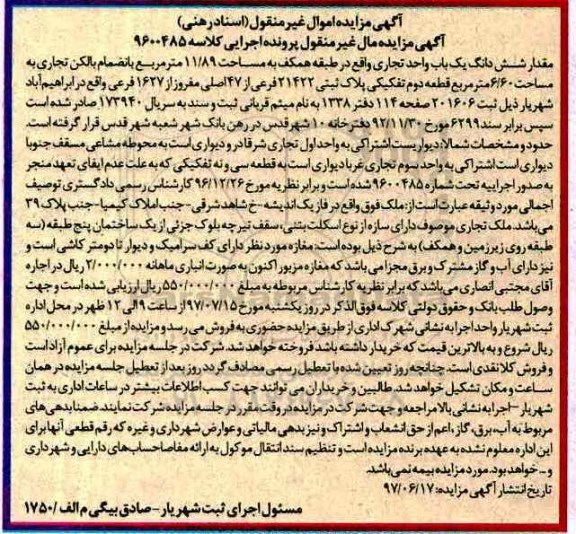 آگهی مزایده اموال غیر منقول (اسناد رهنی)
آگهی مزایده مال غیر منقول پرونده اجرایی کلاسه 9600485
مقدار شش دانگ یک باب واحد تجاری واقع در طبقه همکف به مساحت 11/89 مترمربع بانضمام بالکن تجاری به
مساحت 6/60 متر مربع قطعه دوم تفکیکی پلاک ثبتی 21422 فرعی از 47 اصلی مفروز از 1627 فرعی واقع در ابراهیم آباد
شهریار ذیل ثبت 201606 صفحه 114 دفتر 1338 به نام میثم قربانی ثبت و سند به سریال 173940 صادر شده است
سپس برابر سند 6299 مورخ 92/11/30 دفترخانه 10 شهر قدس در رهن بانک شهر شعبه شهر قدس قرار گرفته است.
حدود و مشخصات شمالا: دیواریست اشتراکی به واحد اول تجاری شرقا در و دیواری است به محوطه مشاعی مسقف جنوبا
دیواری است اشتراکی به واحد سوم تجاری غربا دیواری است به قطعه سی و نه تفکیکی که به علت عدم ایفای تعهد منجر
به صدور اجراییه تحت شماره 9600485 شده است و برابر نظریه مورخ 96/12/26 کارشناس رسمی دادگستری توصیف
اجمالی مورد وثیقه عبارت است از: ملک فوق واقع در فاز یک اندیشه-خ شاهد شرقی-جنب املاک کیمیا-جنب پلاک 39
می‌باشد. ملک تجاری موصوف دارای سازه از نوع اسکلت بتنی، سقف تیرچه بلوک جزئی از یک ساختمان پنج طبقه (سه
طبقه روی زیرزمین و همکف) به شرح ذیل بوده است: مغازه مورد نظر دارای کف سرامیک و دیوار تا دو متر کاشی است و
نیز دارای آب و گاز مشترک و برق مجزا می باشد که مغازه مزبور اکنون به صورت انباری ماهانه 2/000/000 ریال در اجاره
آقای مجتبی انصاری می‌باشد که برابر نظریه کارشناس مربوطه به مبلغ 550/000/000 ریال ارزیابی شده است و جهت
وصول طلب بانک و حقوق دولتی کلاسه فوق الذکر در روز یکشنبه مورخ 97/07/15 از ساعت 9 الی 12 ظهر در محل اداره
ثبت شهریار واحد اجرا به نشانی شهرک اداری از طریق مزایده حضوری به فروش می رسد و مزایده از مبلغ 550/000/000
ریال شروع و به بالاترین قیمت که خریدار داشته باشد فروخته خواهد شد. شرکت در جلسه مزایده برای عموم آزاد است
و فروش کلا نقدی است. چنانچه روز تعیین شده با تعطیل رسمی مصادف گردد روز بعد از تعطیل جلسه مزایده در همان
ساعت و مکان تشکیل خواهد شد. طالبین و خریداران می توانند جهت کسب اطلاعات بیشتر در ساعات اداری به ثبت
شهریار-اجرا به نشانی بالا مراجعه و جهت شرکت در مزایده در وقت مقرر در جلسه مزایده شرکت نمایند. ضمنا بدهی های
مربوط به آب، برق، گاز، اعم از حق انشعاب و اشتراک و نیز بدهی مالیاتی و عوارض شهرداری و غیره که رقم قطعی آنها برای
این اداره معلوم نشده به عهده برنده مزایده است و تنظیم سند انتقال موکول به ارائه مفاصاحساب‌های دارایی و شهرداری
و... خواهد بود. مورد مزایده بیمه نمی باشد.
تاریخ انتشار آگهی مزایده: 97/06/17
مسئول اجرای ثبت شهریار-صادق بیگی م الف/1750